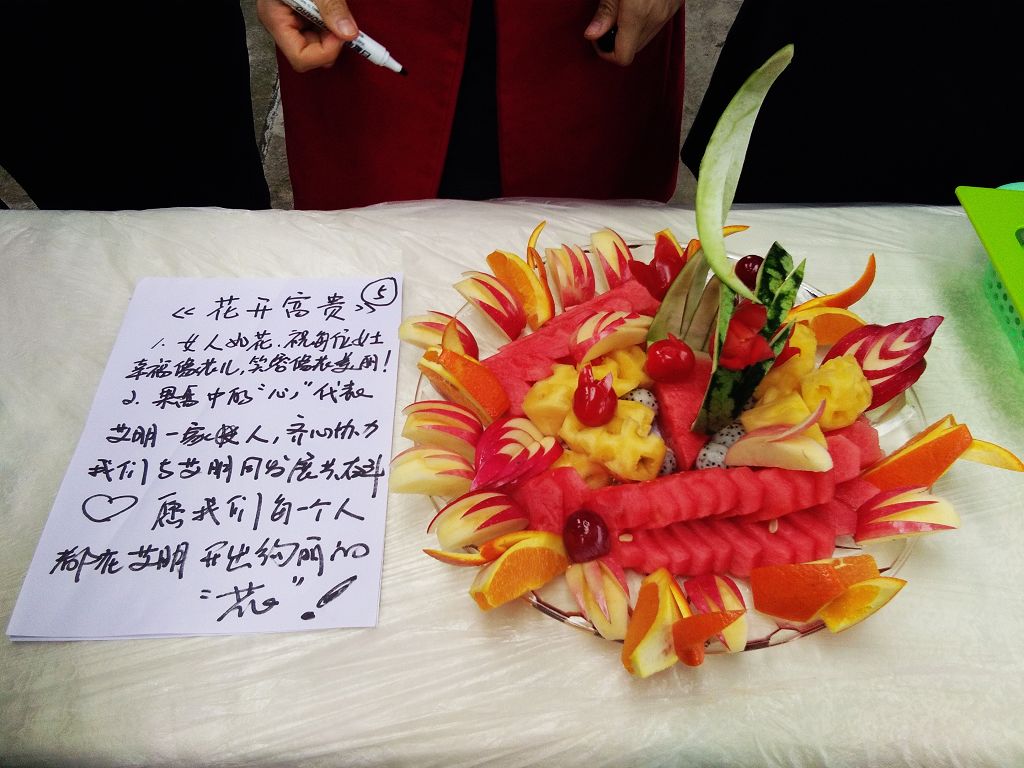 《花开富贵》 ⑤
1. 女人如花,祝每位女士
幸福像花儿,笑容像花更甜!
2. 果盘中的“心”代表
艾明一家人,齐心协力
我们与艾明同发展共在
♡ 愿我们每一个人
都在艾明开出绚丽的
“花”!